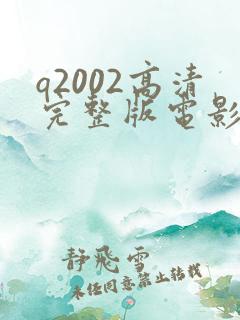 q2002高清
完整版电影
静飛雪
未经同意禁止转载